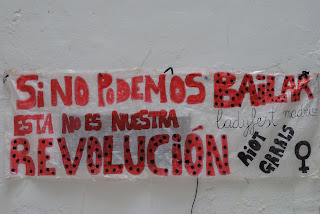 Si NO PODEMOS BAILAR
ESTA NO ES NUESTRA
ladyfest madrid
REVOLUCIÓN
RIOT
GRRRLS